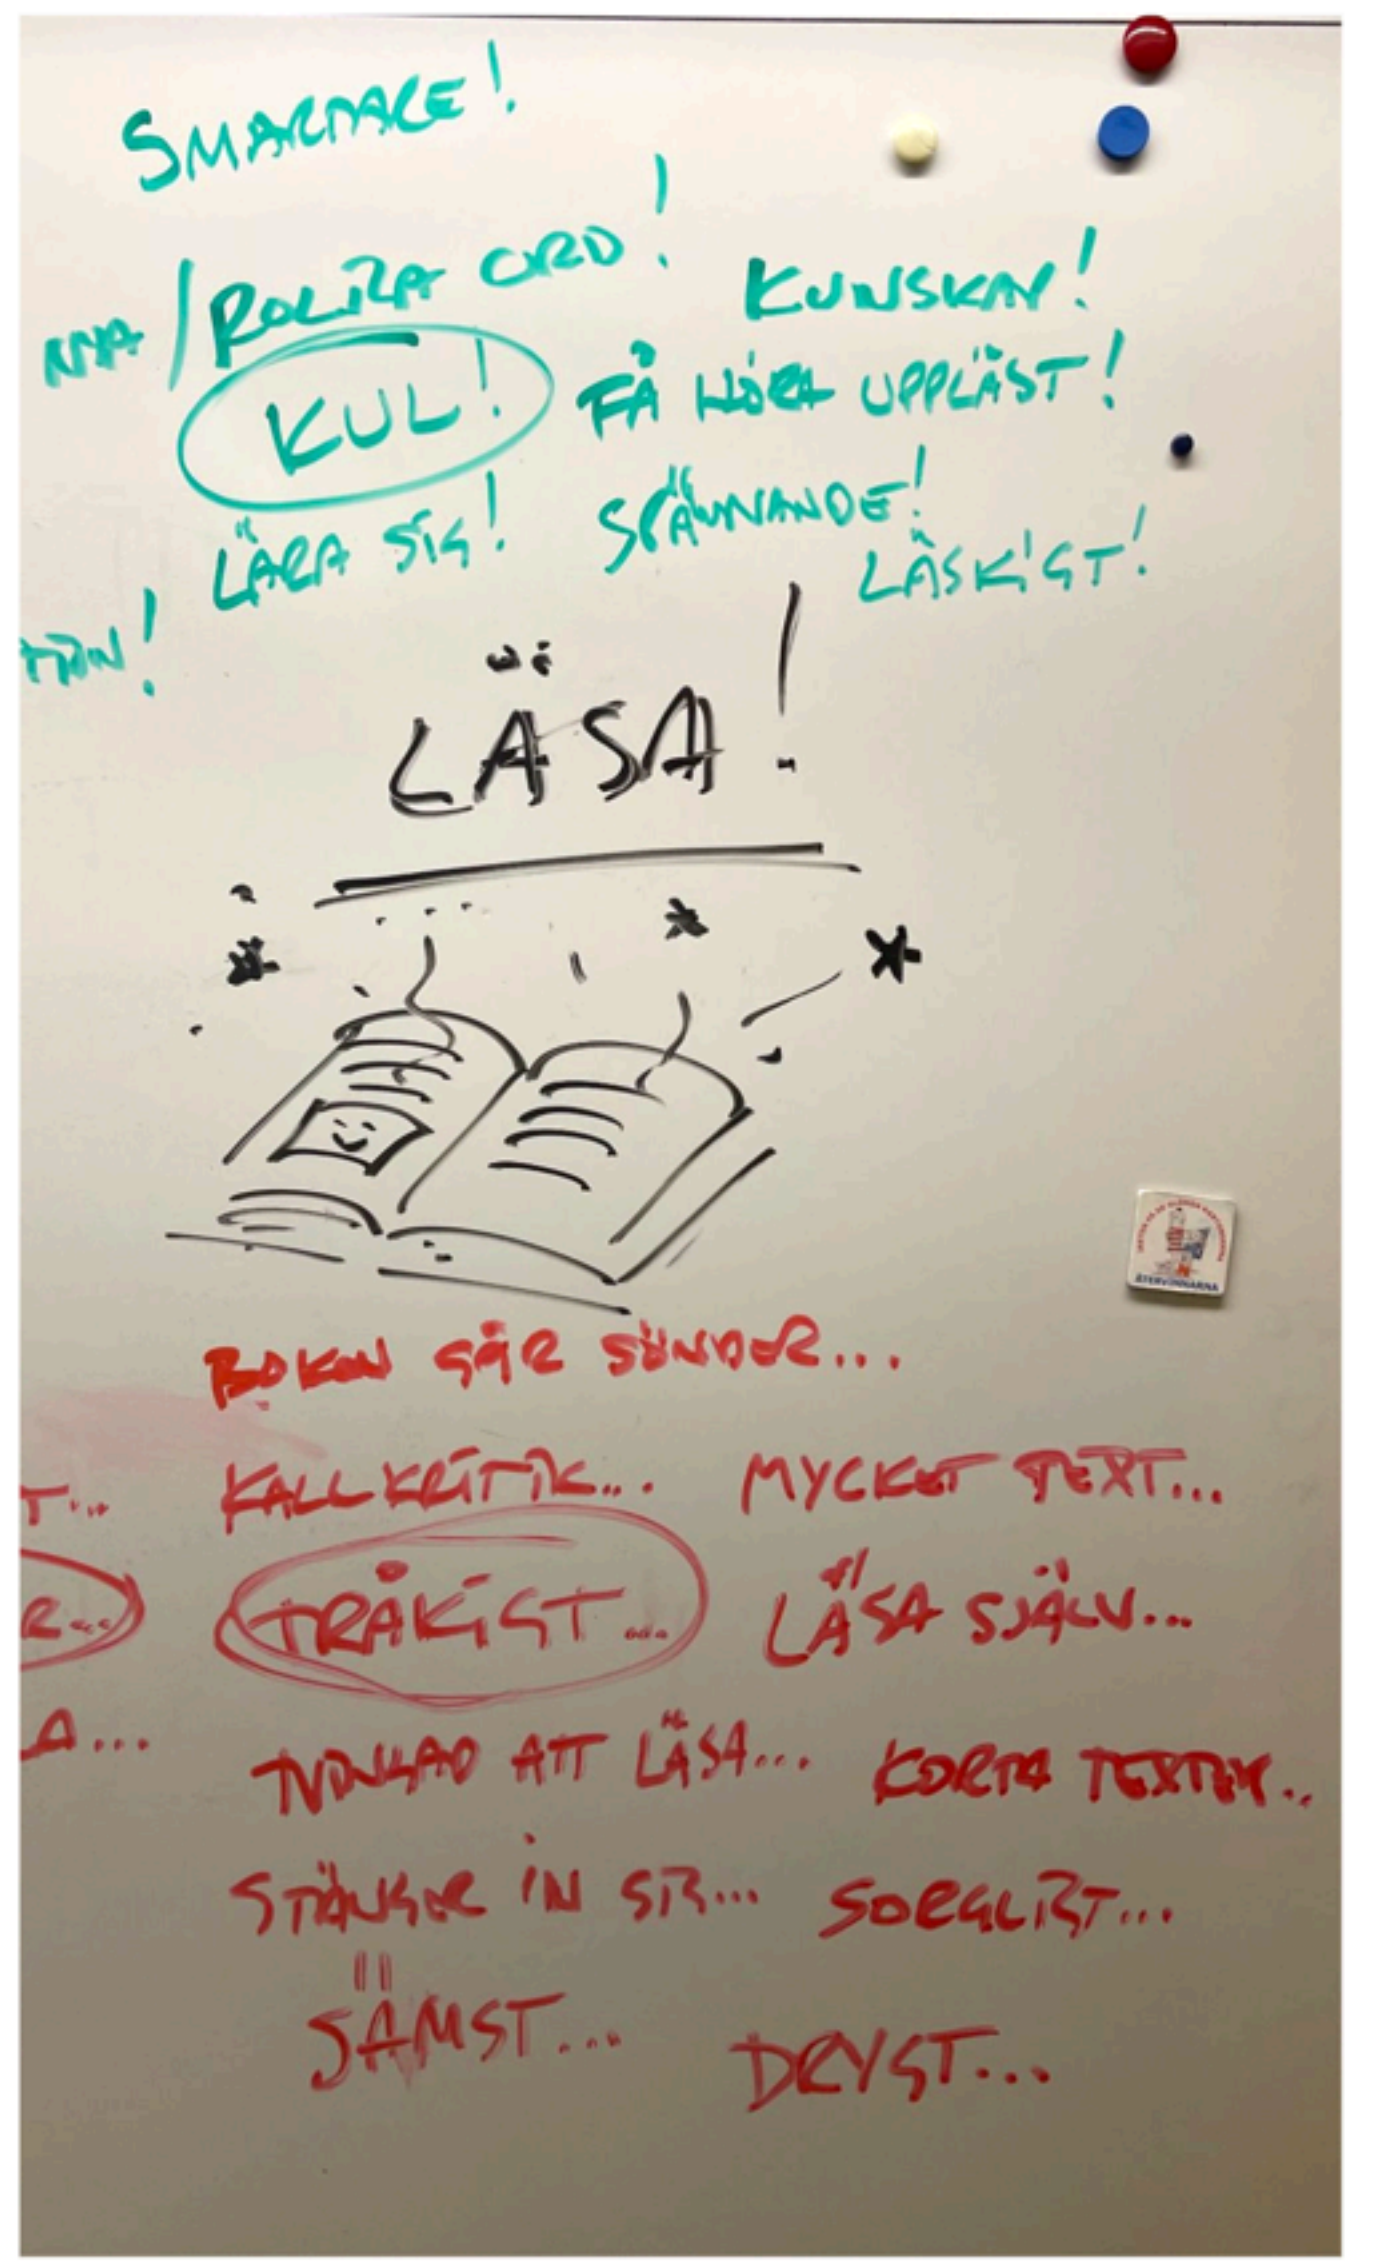 SMARTARE!
NYA/ROLIGA ORD!
KUNSKAP!
KUL!
FÅ HÖRA UPPLÄST!
LÄRA SIG!
SPÄNNANDE!
LÄSKIGT!
LÄSA!
ÅTERVINNARNA
BOKEN GÅR SÖNDER...
T...
KALLKRITIK...
MYCKET TEXT...
R...
TRÅKIGT...
LÄSA SJÄLV...
A...
TVINGAD ATT LÄSA...
KORTA TEXTER...
STÄNGER IN SIG...
SORGLIGT...
SÄMST...
DRYGT...